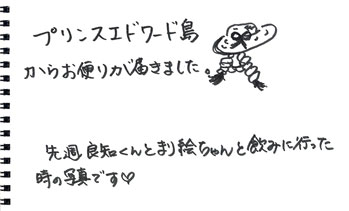 プリンスエドワード島
からお便りが届きました。
先週良知くんとまり絵ちゃんと飲みに行った
時の写真です♡